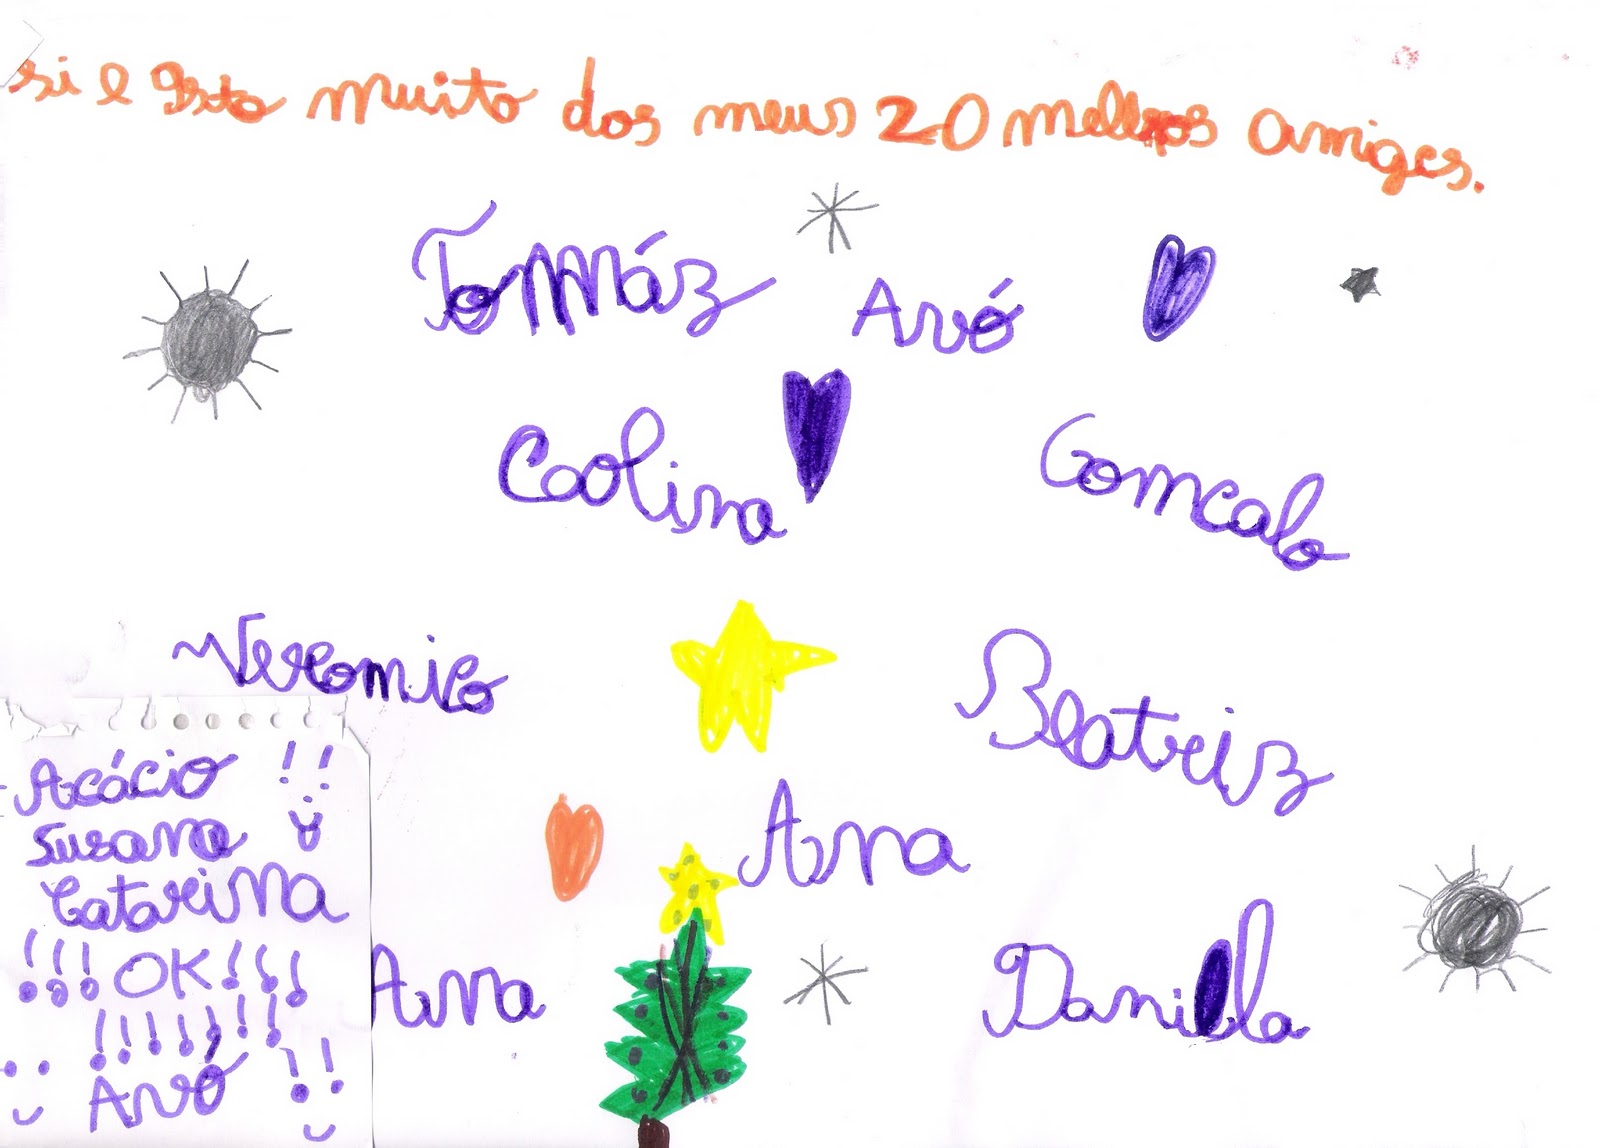 si e gsto muito dos meus 20 mellros amiges.
Tommáz Avó
Coolina Gomcalo
Veromico Beatriz
Ana
Ana Daniela
Acácio !!
Susana
Catarina
!!! OK !!!
!!!!!!!
Avó !!